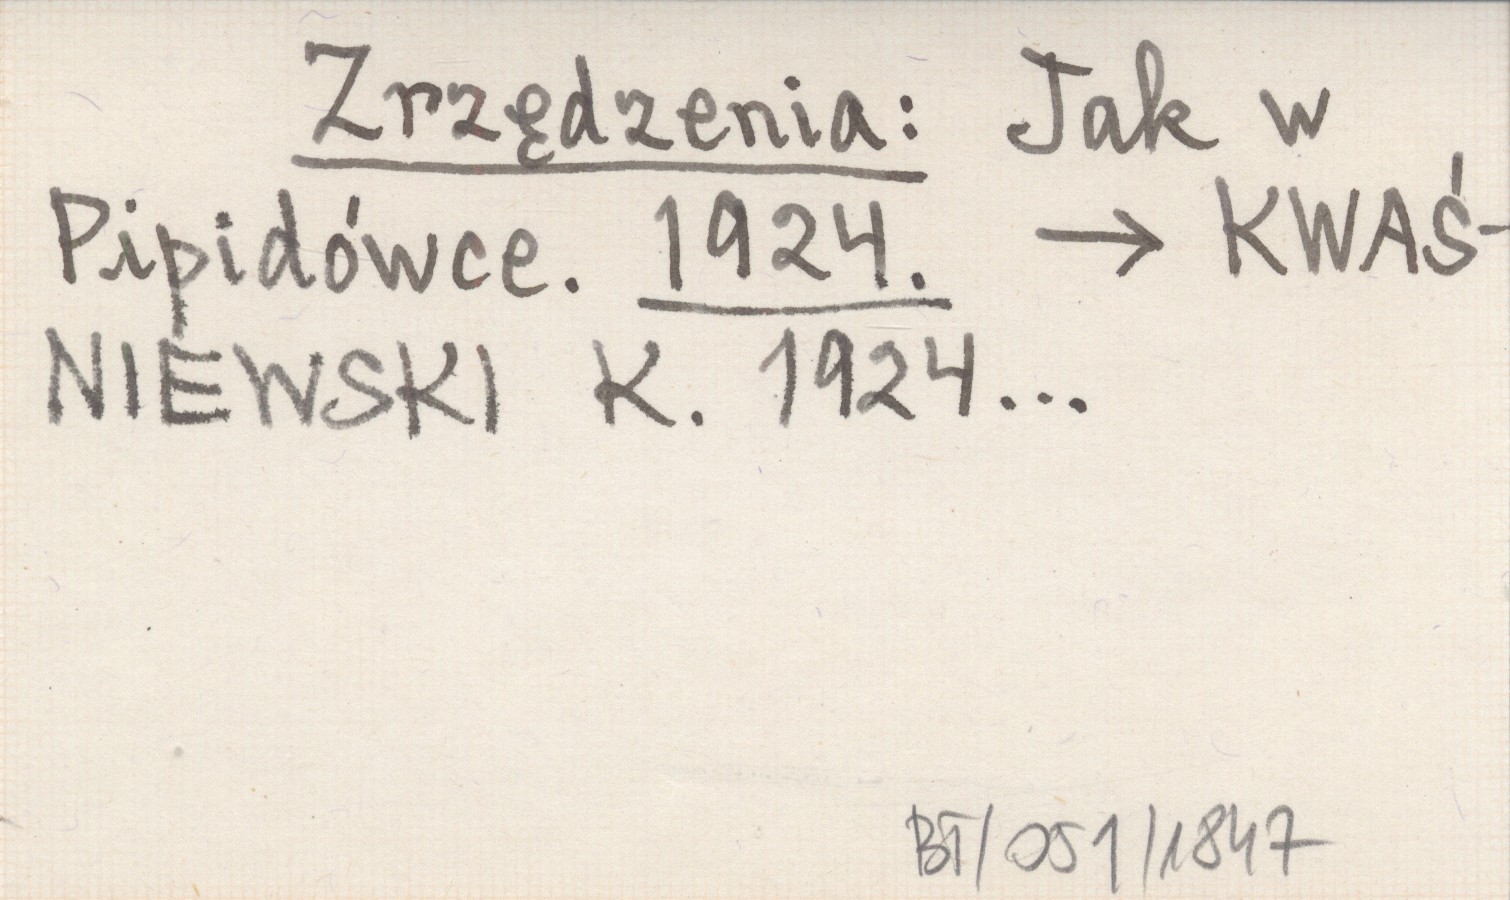 Zrzędzenia: Jak w
Pipidówce. 1924. → KWAŚ-
NIEWSKI K. 1924...
BT/051/1847